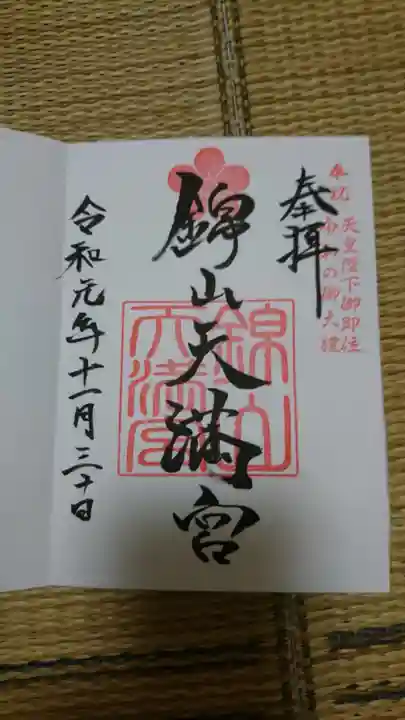 奉祝 天皇陛下御即位
令和の御大禮
奉拝
錦山天満宮
錦山天満宮
令和元年十一月三十日